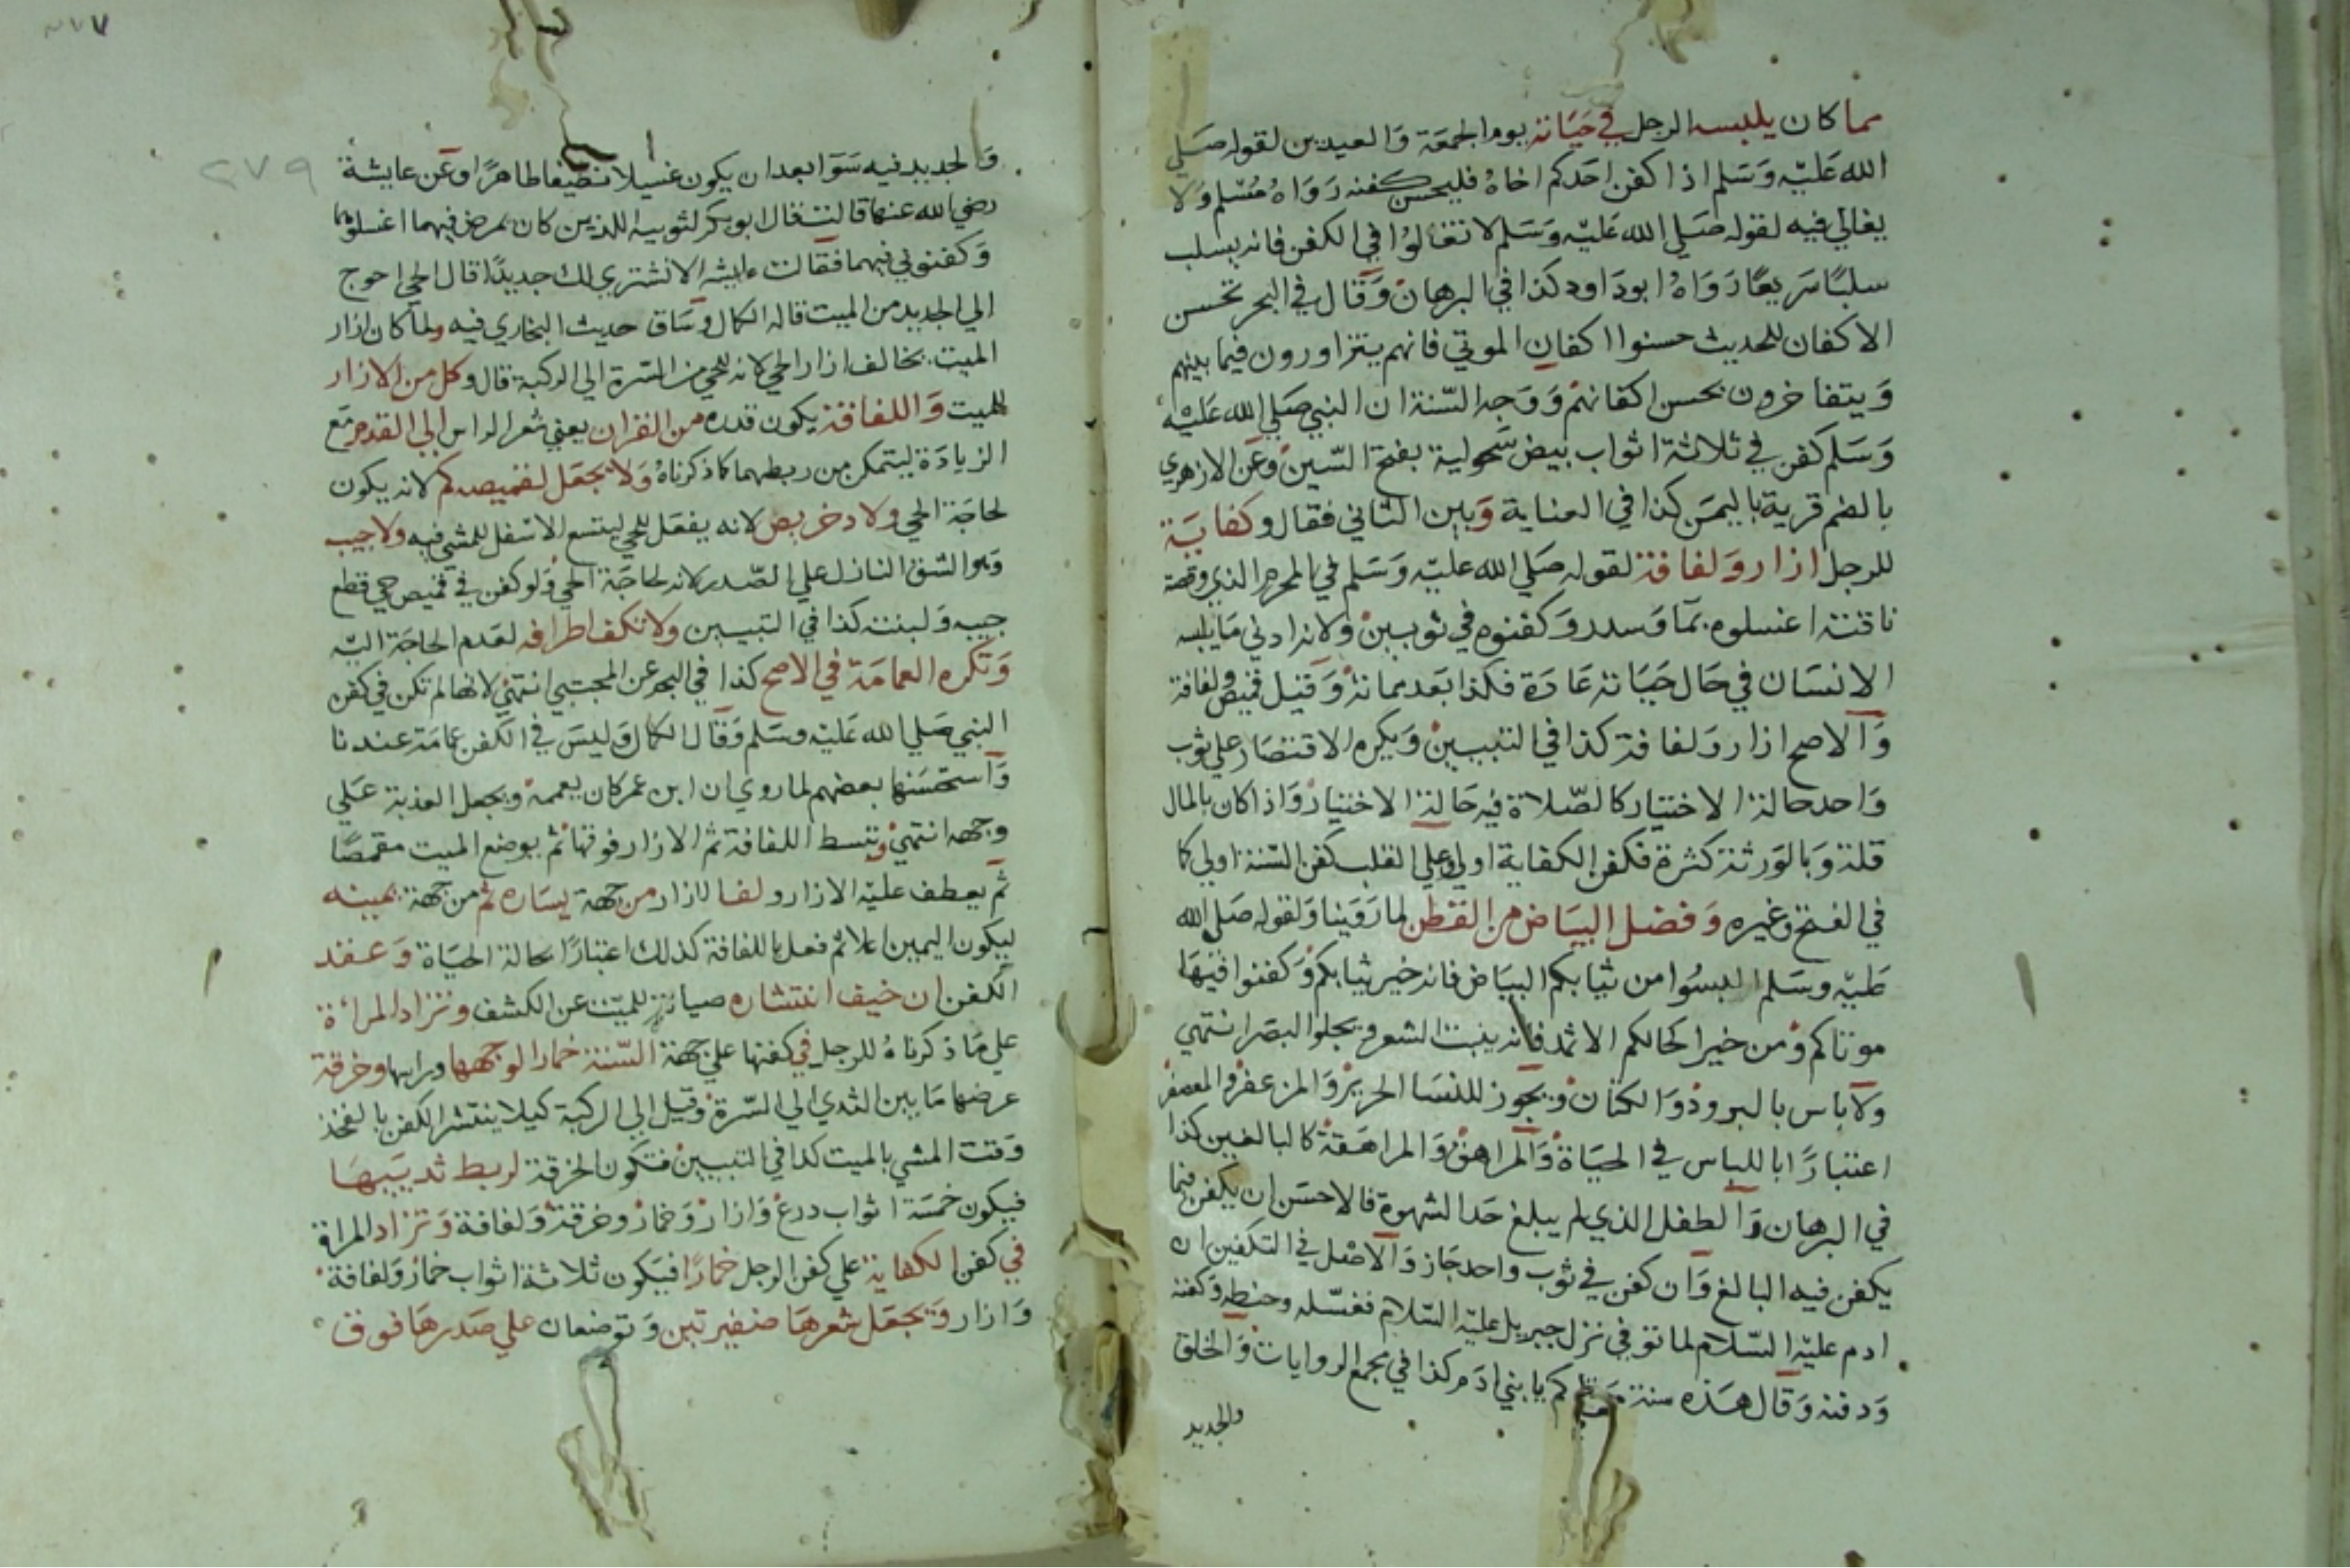 مما كان يلبسه الرجل في حياته يوم الجمعة والعيدين لقوله صلي
الله عليه وسلم اذا كفن احدكم اخاه فليحسن كفنه رواه مسلم ولا
يغالي فيه لقوله صلي الله عليه وسلم لا تغالوا في الكفن فانه يسلب
سلبا سريعا رواه ابوداود كذا في البرهان وقال في البحر تحسن
الاكفان للحديث حسنوا اكفان الموتي فانهم يتزاورون فيما بينهم
ويتفاخرون بحسن اكفانهم ووجه السنة ان النبي صلي الله عليه
وسلم كفن في ثلاثة اثواب بيض سحولية بفتح السين وعن الازهري
بالضم قرية باليمن كذا في العناية وبين الثاني فقال وكفاية
للرجل ازار ولفافة لقوله صلي الله عليه وسلم في المحرم الذي وقصته
ناقته اغسلوه بما وسدر وكفنوه في ثوبين ولانه ادني ما يلبسه
الانسان في حال حياته عادة فكذا بعد مماته وقيل قميص ولفافة
والاصح ازار ولفافة كذا في التبيين ويكره الاقتصار علي ثوب
واحد حالة الاختيار كالصلاة فيه حالة الاختيار واذا كان بالمال
قلة وبالورثة كثرة فكفن الكفاية اولي وعلي القلب كفن السنة اولي كما
في الفتح وغيره وفضل البياض من القطن لما روينا ولقوله صلي الله
عليه وسلم البسوا من ثيابكم البياض فانه خير ثيابكم وكفنوا فيها
موتاكم ومن خير اكحالكم الاثمد فانه ينبت الشعر ويجلوا البصر انتهي
ولا باس بالبرود والكتان ويجوز للنسا الحرير والمزعفر والمعصفر
اعتبارا باللباس في الحياة والمراهق والمراهقة كالبالغين كذا
في البرهان والطفل الذي لم يبلغ حد الشهوة فالاحسن ان يكفن فيما
يكفن فيه البالغ وان كفن في ثوب واحد جاز والاصل في التكفين ان
ادم عليه السلام لما توفي نزل جبريل عليه السلام فغسله وحنطه وكفنه
ودفنه وقال هذه سنة يا بني ادم كذا في مجمع الروايات والخلق
والجديد
٢٧٩
والجديد فيه سوا بعد ان يكون غسيلا نضيفا طاهرا وعن عايشة
رضي الله عنها قالت قال ابوبكر لثوبيه اللذين كان يمرض فيهما اغسلوهما
وكفنوني فيهما فقالت عايشه الا نشتري لك جديدا قال الحي احوج
الي الجديد من الميت قاله الكمال وساق حديث البخاري فيه ولما كان ازار
الميت يخالف ازار الحي لانه للحي من السرة الي الركبة قال وكل من الازار
للميت واللفافة يكون قدره من القران يعني شعر الراس الي القدم مع
الزيادة ليتمكن من ربطهما كما ذكرناه ولا يجعل لقميصه كم لانه يكون
لحاجة الحي ولا دخريص لانه يفعل للحي ليتسع الاسفل للمشي فيه ولا جيب
وهو الشق النازل علي الصدر لانه لحاجة الحي ولو كفن في قميص حي قطع
جيبه ولبنته كذا في التبيين ولا تكف اطرافه لعدم الحاجة اليه
وتكره العمامة في الاصح كذا في البحر عن المجتبي انتهي لانها لم تكن في كفن
النبي صلي الله عليه وسلم وقال الكمال وليس في الكفن عمامة عندنا
واستحسنها بعضهم لما روي ان ابن عمر كان يعممه ويجعل العذبة علي
وجهه انتهي وتبسط اللفافة ثم الازار فوقها ثم يوضع الميت مقمصا
ثم يعطف عليه الازار ولف الازار من جهة يساره ثم من جهة يمينه
ليكون اليمين اعلا ثم فعل باللفافة كذلك اعتبارا بحالة الحياة وعقد
الكفن ان خيف انتشاره صيانة للميت عن الكشف وتزاد المرأة
علي ما ذكرناه للرجل في كفنها علي جهة السنة خمارا لوجهها وراسها وخرقة
عرضها ما بين الثدي الي السرة وقيل الي الركبة كيلا ينتشر الكفن بالفخذ
وقت المشي بالميت كذا في التبيين فتكون الخرقة لربط ثدييها
فيكون خمسة اثواب درع وازار وخمار وخرقة ولفافة وتزاد المراة
في كفن الكفاية علي كفن الرجل خمارا فيكون ثلاثة اثواب خمار ولفافة
وازار ويجعل شعرها ضفيرتين وتوضعان علي صدرها فوق